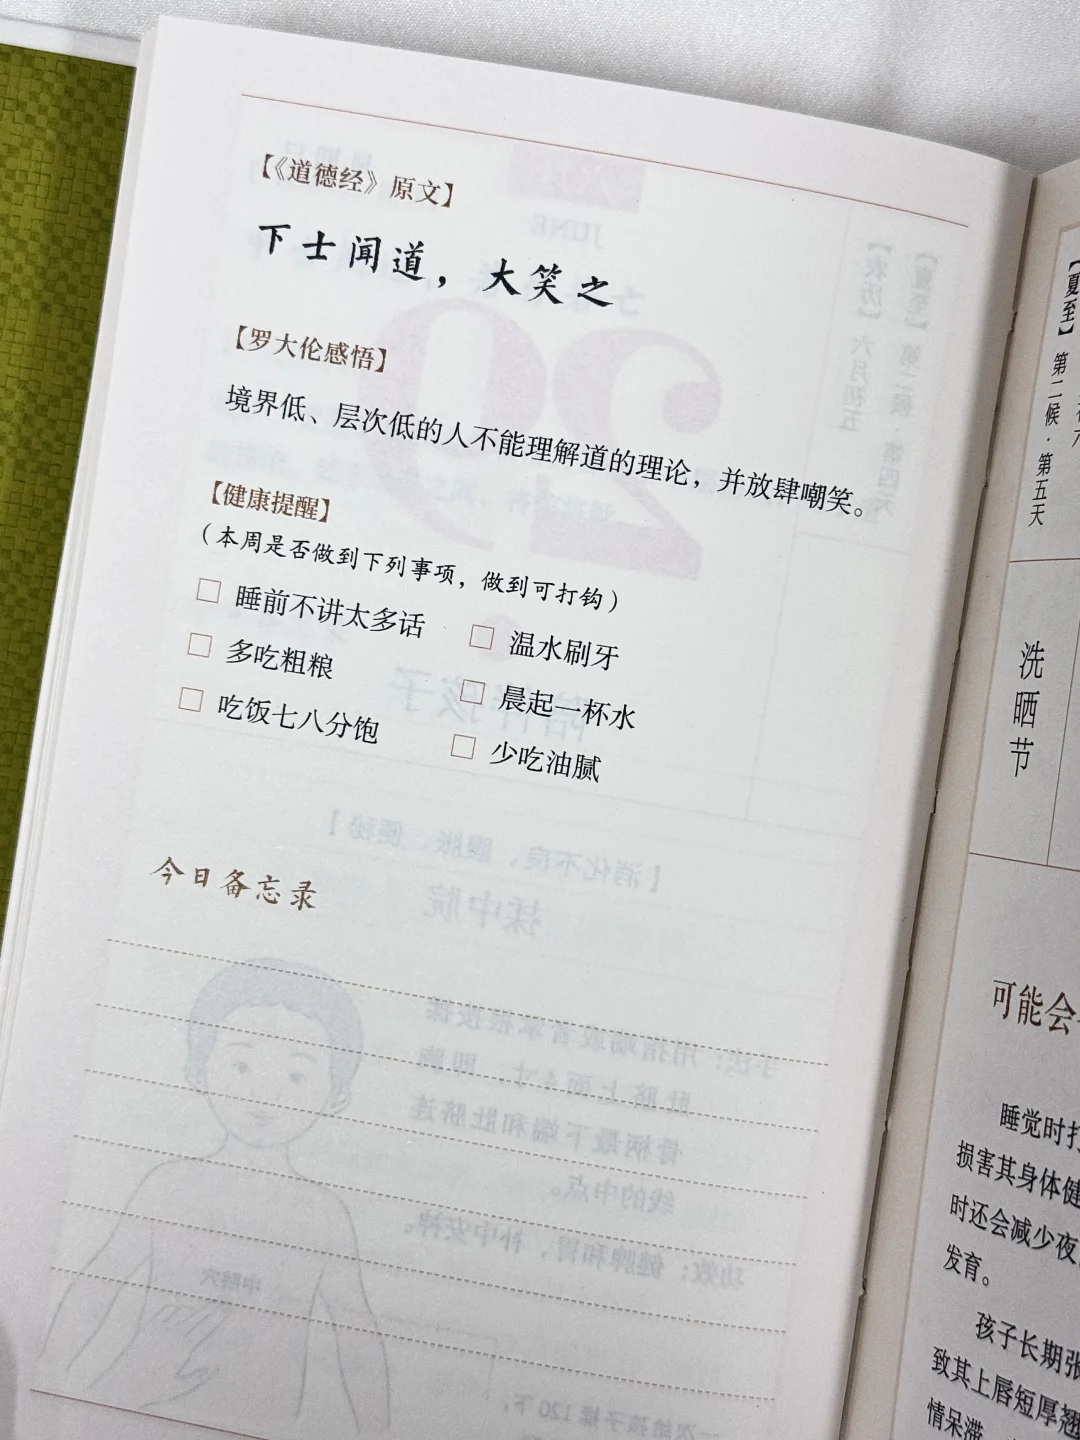 【《道德经》原文】
下士闻道，大笑之
【罗大伦感悟】
境界低、层次低的人不能理解道的理论，并放肆嘲笑。
【健康提醒】
（本周是否做到下列事项，做到可打钩）
□ 睡前不讲太多话 □ 温水刷牙
□ 多吃粗粮 □ 晨起一杯水
□ 吃饭七八分饱 □ 少吃油腻
今日备忘录
【夏至】第二候·第五天
洗晒节
可能会
睡觉时
损害其身体健
时还会减少夜
发育。
孩子长期张
致其上唇短厚翘
情呆滞